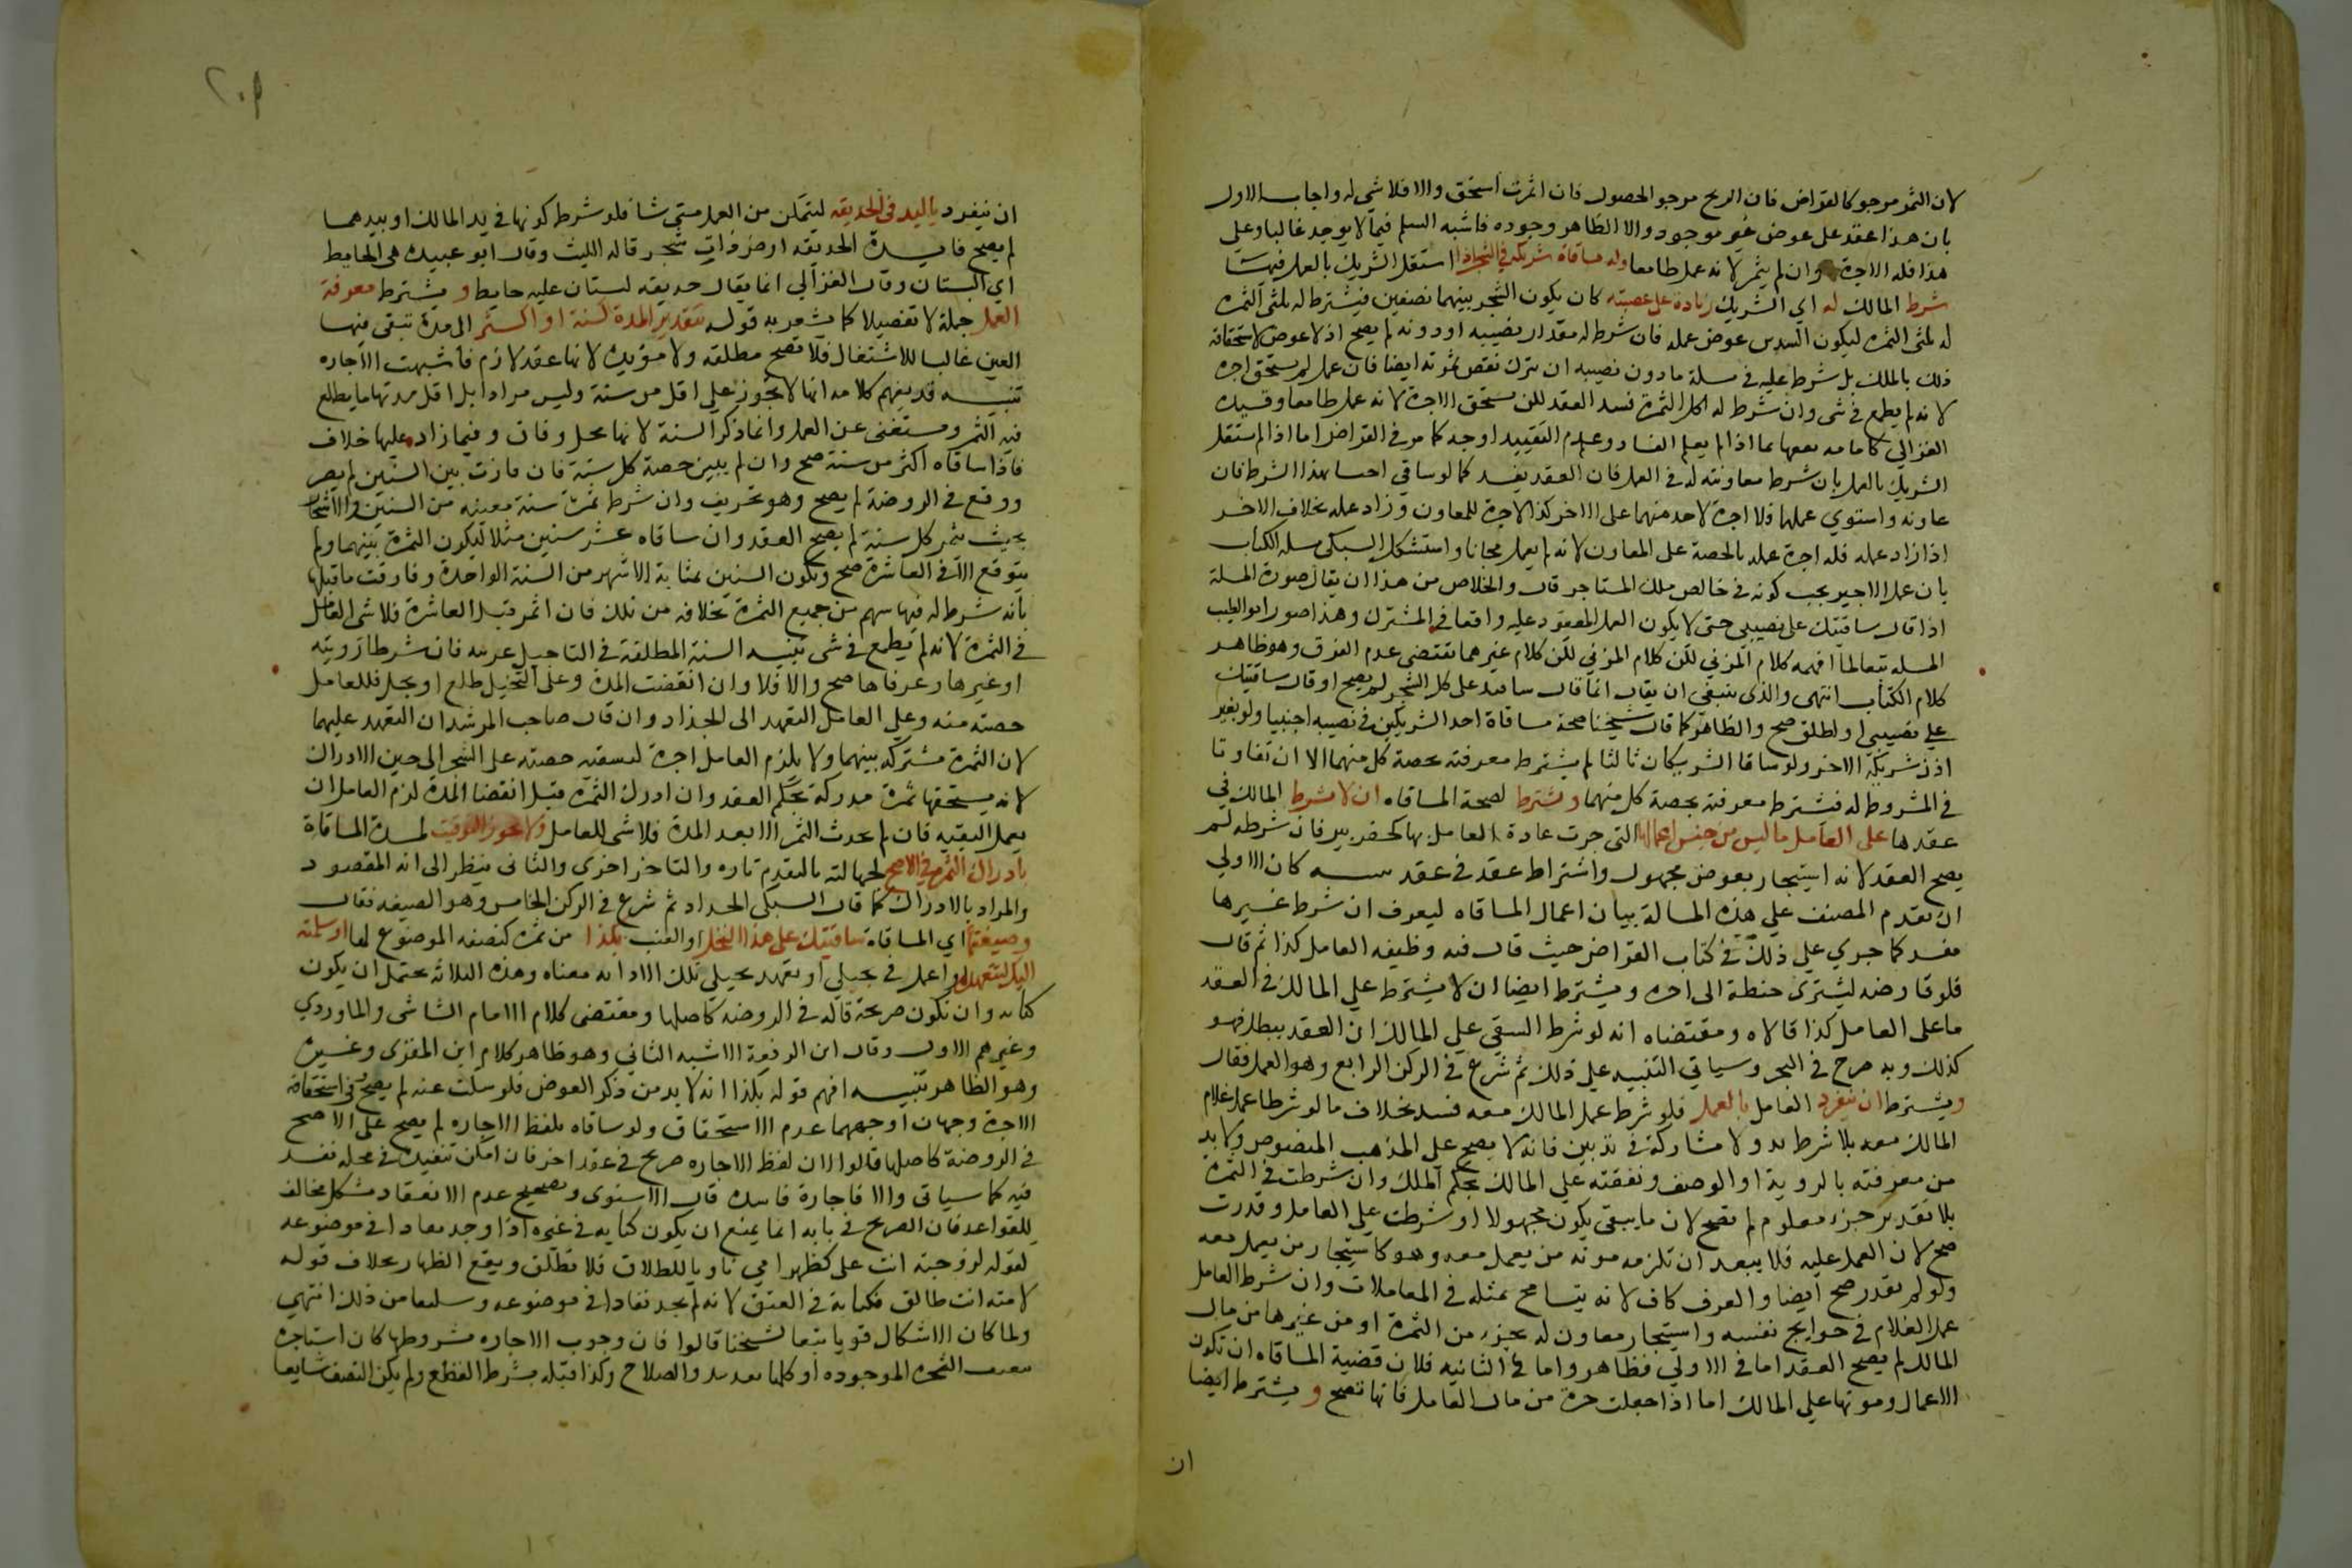 لان الثمر مرجو كالقراض فان الربح مرجو الحصول فان اثمرت استحق والا فلا شي له واجاب الاول
بان هذا عقد على عوض غير موجود والا الظاهر وجوده فاشبه السلم فيما لا يوجد غالبا وعلى
هذا فله الاجرة وان لم يثمر لانه عمل طامعا وله مساقاة شريكه في الشجر اذا استقل الشريك بالعمل فيها
شرط المالك له اي الشريك زيادة على حصته كان يكون الشجر بينهما نصفين فيشترط له ثلثي الثمره
له ثلثي الثمره ليكون السدس عوض عمله فان شرط له مقدار نصيبه او دونه لم يصح اذ لا عوض لاستحقاقه
ذلك بالملك بل شرط عليه في مسلة ما دون نصيبه ان يترك نقص ثمرته ايضا فان عمل لم يستحق اجره
لانه لم يطمع في شي وان شرط له كل الثمرة فسد العقد لكن يستحق الاجرة لانه عمل طامعا وقيده
الغزالي كامامه بما اذا لم يعلم الفساد وعدم التقييد اوجه كما مر في القراض اما اذا لم يستقل
الشريك بالعمل بان شرط معاونته له في العمل فان العقد يفسد كما لو ساقى اجنبيا بهذا الشرط فان
عاونه واستوي عملهما فلا اجرة لاحد منهما على الاخر كذا لا اجرة للمعاون وزاد عمله بخلاف الاخر
اذا زاد عمله فله اجرة عمله بالحصة على المعاون لانه لم يعمل مجانا واستشكل السبكي مسلة الكتاب
بان عمل الاجير يجب كونه في خالص ملك المستاجر قال والخلاص من هذا ان يقال صورة المسلة
اذا قال ساقيتك على نصيبي حتى لا يكون العمل المعقود عليه واقعا في المشترك وهذا صور ابو الطيب
المسله تبعا لما افهمه كلام المزني لكن كلام المزني لكن كلام غيرهما يقتضي عدم الفرق وهو ظاهر
كلام الكتاب انتهى والذي ينبغي ان يقال انما قال ساقيتك على كل الشجر لم يصح او قال ساقيتك
على نصيبي او اطلق صح والظاهر كما قال شيخنا صحة مساقاة احد الشريكين في نصيبه اجنبيا ولو بغير
اذن شريكه الاخر ولو ساقا الشريكان ثالثا لم يشترط معرفته بحصة كل منهما الا ان تفاوتا
في المشروط له فيشترط معرفته بحصة كل منهما ويشترط لصحة المساقاه ان لا يشرط المالك في
عقدها على العامل ما ليس من جنس اعمالها التي جرت عادة العامل بها كحفر بير فان شرطه لم
يصح العقد لانه استيجار بعوض مجهول واشتراط عقد في عقد تنبيه كان الاولي
ان تقدم المصنف علي هذه المسالة بيان اعمال المساقاه ليعرف ان شرط غيرها
مفسد كما جري علي ذلك في كتاب القراض حيث قال فيه وظيفه العامل كذا ثم قال
فلو قارضه ليشتري حنطة الى اخره ويشترط ايضا ان لا يشترط علي المالك في العقد
ما على العامل كذا قالاه ومقتضاه انه لو شرط السقي علي المالك ان العقد يبطل وهو
كذلك وبه صرح في البحر وسياتي التنبيه علي ذلك ثم شرع في الركن الرابع وهو العمل فقال
ويشترط ان ينفرد العامل بالعمل فلو شرط عمل المالك معه فسد بخلاف ما لو شرطا عمل غلام
المالك معه بلا شرط يد ولا مشاركة في تدبير فانه لا يصح على المذهب المنصوص ولا بد
من معرفته بالروية او الوصف ونفقته علي المالك بحكم الملك وان شرطت في الثمرة
بلا تقدير جزء معلوم لم تصح لان ما يبقي يكون مجهولا او شرطت علي العامل وقدرت
صح لان العمل عليه فلا يبعد ان تلزمه مونه من يعمل معه وهو كاستيجار من يعمل معه
ولو لم تقدر صح ايضا والعرف كاف لانه يتسامح بمثله في المعاملات وان شرط العامل
عمل الغلام في حوايج نفسه واستيجار معاون له بجزء من الثمرة او من غيرها من مال
المالك لم يصح العقد اما في الاولي فظاهر واما في الثانيه فلان قضية المساقاه ان تكون
الاعمال ومونتها علي المالك اما اذا جعلت من مال العامل فانها تصح ويشترط ايضا
ان
ان ينفرد باليد في الحديقه ليتمكن من العمل متى شا فلو شرط كونها في يد المالك او بيدهما
لم يصح فايدة الحديقه ارض ذات شجر قاله الليث وقال ابو عبيده هي الحايط
اي البستان وقال الغزالي انما يقال حديقه لبستان عليه حايط ويشترط معرفة
العمل جملة لا تفصيلا كما يشعر به قوله بتقدير المدة كسنة او اكثر الى مدة تبقى فيها
العين غالبا للاشتغال فلا تصح مطلقه ولا مؤبده لانها عقد لازم فاشبهت الاجاره
تنبيه قد يفهم كلامه انها لا تجوز علي اقل من سنة وليس مرادا بل اقل مدتها ما يطلع
فيه الثمر ويستغنى عن العمل وانما ذكر السنة لانها محل وفاق وفيما زاد عليها خلاف
فاذا ساقاه اكثر من سنة صح وان لم يبين حصة كل سنة فان فاوت بين السنين لم يضر
ووقع في الروضة لم يصح وهو تحريف وان شرط ثمرة سنة معينه من السنين والاشجار
بحيث تثمر كل سنة لم يصح العقد وان ساقاه عشر سنين مثلا لتكون الثمرة بينهما ولم
يتوقع الا في العاشرة صح وتكون السنين بمثابة الاشهر من السنة الواحدة وفارقت ما قبلها
بانه شرط له فيها سهم من جميع الثمرة بخلافه من تلك فان اثمر قبل العاشرة فلا شي للعامل
في الثمرة لانه لم يطمع في شي تنبيه السنة المطلقة في التاجيل عربيه فان شرطا روميه
او غيرها وعرفاها صح والا فلا وان انقضت المدة وعلى النخيل طلع او بلح فللعامل
حصته منه وعلي العامل التعهد الى الجذاذ وان قال صاحب المرشد ان التعهد عليهما
لان الثمرة مشتركه بينهما ولا يلزم العامل اجرة لتبقية حصته على الشجر الى حين الادراك
لانه يستحقها ثمرة مدركة بحكم العقد وان ادرك الثمره قبل انقضا المدة لزم العامل ان
يعمل البقيه فان لم يحدث الثمر الا بعد المدة فلا شي للعامل ولا يجوز التوقيت لمدة المساقاة
بادراك الثمرة في الاصح لجهالته بالتقدم تاره والتاخر اخرى والثاني ينظر الى انه المقصود
والمراد بالادراك كما قال السبكي الجداد ثم شرع في الركن الخامس وهو الصيغه فقال
وصيغتها اي المساقاة ساقيتك على هذا النخل او العنب بكذا من ثمره كنصفه الموضوع لها او سلمته
اليك لتتعهده او اعمل في نخيلي او تعهد نخيلي تلك لاداء معناه وهذه الثلاثه يحتمل ان يكون
كنايه وان تكون صريحة قاله في الروضه كاصلها ومقتضى كلام الامام الشاشي والماوردي
وغيرهم الاول وقال ابن الرفعة الاشبه الثاني وهو ظاهر كلام ابن المقري وغيره
وهو الظاهر تنبيه افهم قوله بكذا انه لا بد من ذكر العوض فلو سكت عنه لم يصح وفي استحقاقه
الاجرة وجهان اوجههما عدم الاستحقاق ولو ساقاه بلفظ الاجاره لم يصح على الاصح
في الروضة كاصلها قالوا لان لفظ الاجاره صريح في عقد اخر فان امكن تنفيذه في محله نفذ
فيه كما سياتي والا فاجارة فاسده قال الاسنوي وتصحيح عدم الانعقاد مشكل مخالف
للقواعد فان الصريح في بابه انما يمنع ان يكون كنايه في غيره اذا وجد معادا في موضوعه
لقوله لزوجته انت على كظهر امي ناويا للطلاق فلا تطلق ويقع الظهار بخلاف قوله
لامته انت طالق فكناية في العتق لانه لم يجد نفاذا في موضوعه وسلمنا من ذلك انتهي
ولما كان الاشكال قويا تبعا لشيخنا قالوا فان وجوب الاجاره مشروطها كان استاجره
بنصف الثمره الموجوده او كلها بعد بدو الصلاح وكذا قبله بشرط القطع ولم يكن النصف شايعا